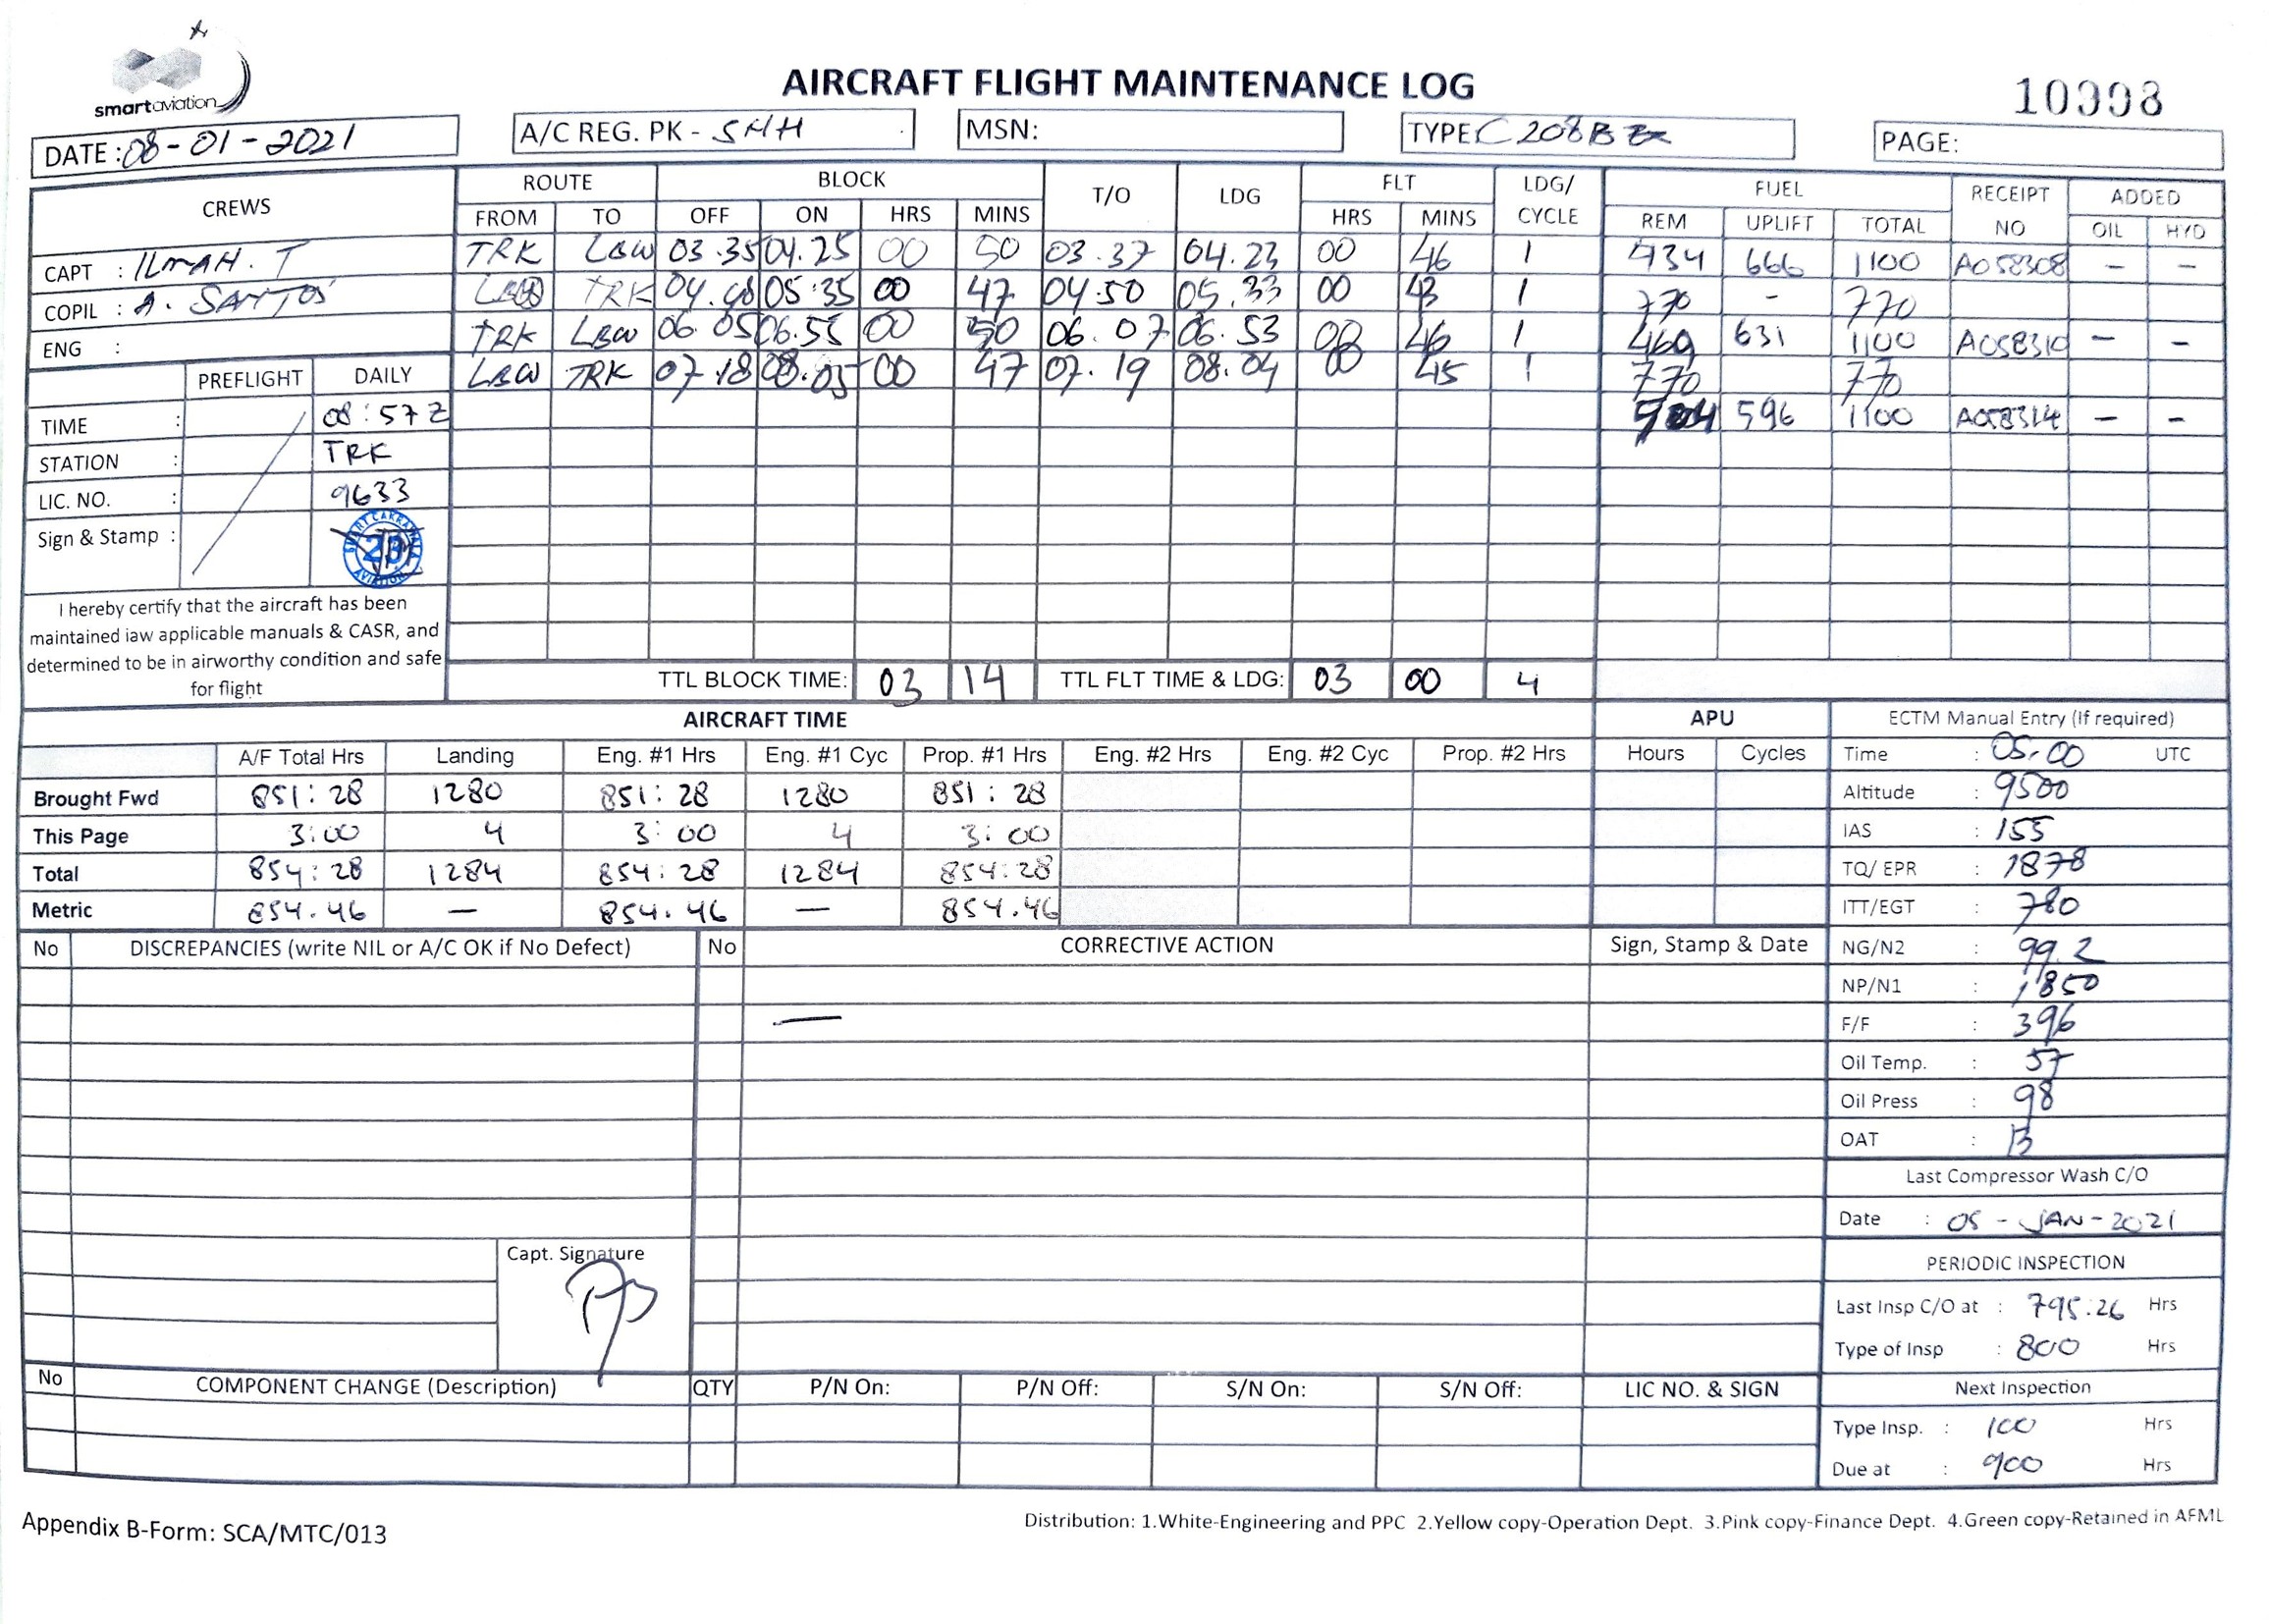 smartaviation
AIRCRAFT FLIGHT MAINTENANCE LOG
10998
DATE : 08-01-2021
A/C REG. PK - SHH
MSN:
TYPE C208B
PAGE:
CREWS
ROUTE BLOCK T/O LDG FLT LDG/ CYCLE FUEL RECEIPT NO ADDED
FROM TO OFF ON HRS MINS HRS MINS REM UPLIFT TOTAL OIL HYD
CAPT : ILMAH. T
COPIL : A. SANTOS
ENG :
TRK LBW 03.35 04.25 00 50 03.37 04.23 00 46 1 434 666 1100 A058308 – –
LBW TRK 04.48 05:35 00 47 04.50 05.33 00 43 1 770 - 770
TRK LBW 06.05 06.55 00 50 06.07 06.53 00 46 1 469 631 1100 A058310 – –
LBW TRK 07.18 08.05 00 47 07.19 08.04 00 45 1 770 770
504 596 1100 A058314 – –
PREFLIGHT DAILY
TIME : 08:57 Z
STATION : TRK
LIC. NO. : 9633
Sign & Stamp :
I hereby certify that the aircraft has been
maintained iaw applicable manuals & CASR, and
determined to be in airworthy condition and safe
for flight
TTL BLOCK TIME: 03 14 TTL FLT TIME & LDG: 03 00 4
AIRCRAFT TIME
A/F Total Hrs Landing Eng. #1 Hrs Eng. #1 Cyc Prop. #1 Hrs Eng. #2 Hrs Eng. #2 Cyc Prop. #2 Hrs
Brought Fwd 851:28 1280 851:28 1280 851:28
This Page 3:00 4 3:00 4 3:00
Total 854:28 1284 854:28 1284 854:28
Metric 854.46 — 854.46 — 854.46
APU
Hours Cycles
ECTM Manual Entry (If required)
Time : 05.00 UTC
Altitude : 9500
IAS : 155
TQ/ EPR : 1878
ITT/EGT : 780
NG/N2 : 99.2
NP/N1 : 1850
F/F : 396
Oil Temp. : 57
Oil Press : 98
OAT : 13
Last Compressor Wash C/O
Date : 05 - JAN - 2021
PERIODIC INSPECTION
Last Insp C/O at : 795.26 Hrs
Type of Insp : 800 Hrs
Next Inspection
Type Insp. : 100 Hrs
Due at : 900 Hrs
No DISCREPANCIES (write NIL or A/C OK if No Defect) No CORRECTIVE ACTION Sign, Stamp & Date
—
Capt. Signature
No COMPONENT CHANGE (Description) QTY P/N On: P/N Off: S/N On: S/N Off: LIC NO. & SIGN
Appendix B-Form: SCA/MTC/013
Distribution: 1.White-Engineering and PPC 2.Yellow copy-Operation Dept. 3.Pink copy-Finance Dept. 4.Green copy-Retained in AFML